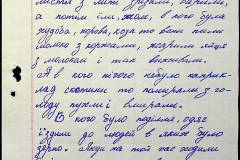 листя з липи зривали, варили,
а потім їли, жом, в кого була
худоба, корова, коза то вони пили
молоко з коржами, жарили яйця
з молоком і так виживали.
А в кого нічого небуло наприк-
лад скотини то помирали з го-
лоду пухли і вмирали.
В кого було поділля, одяг
їздили до людей в яких було
зерно. Люди на той час ходили